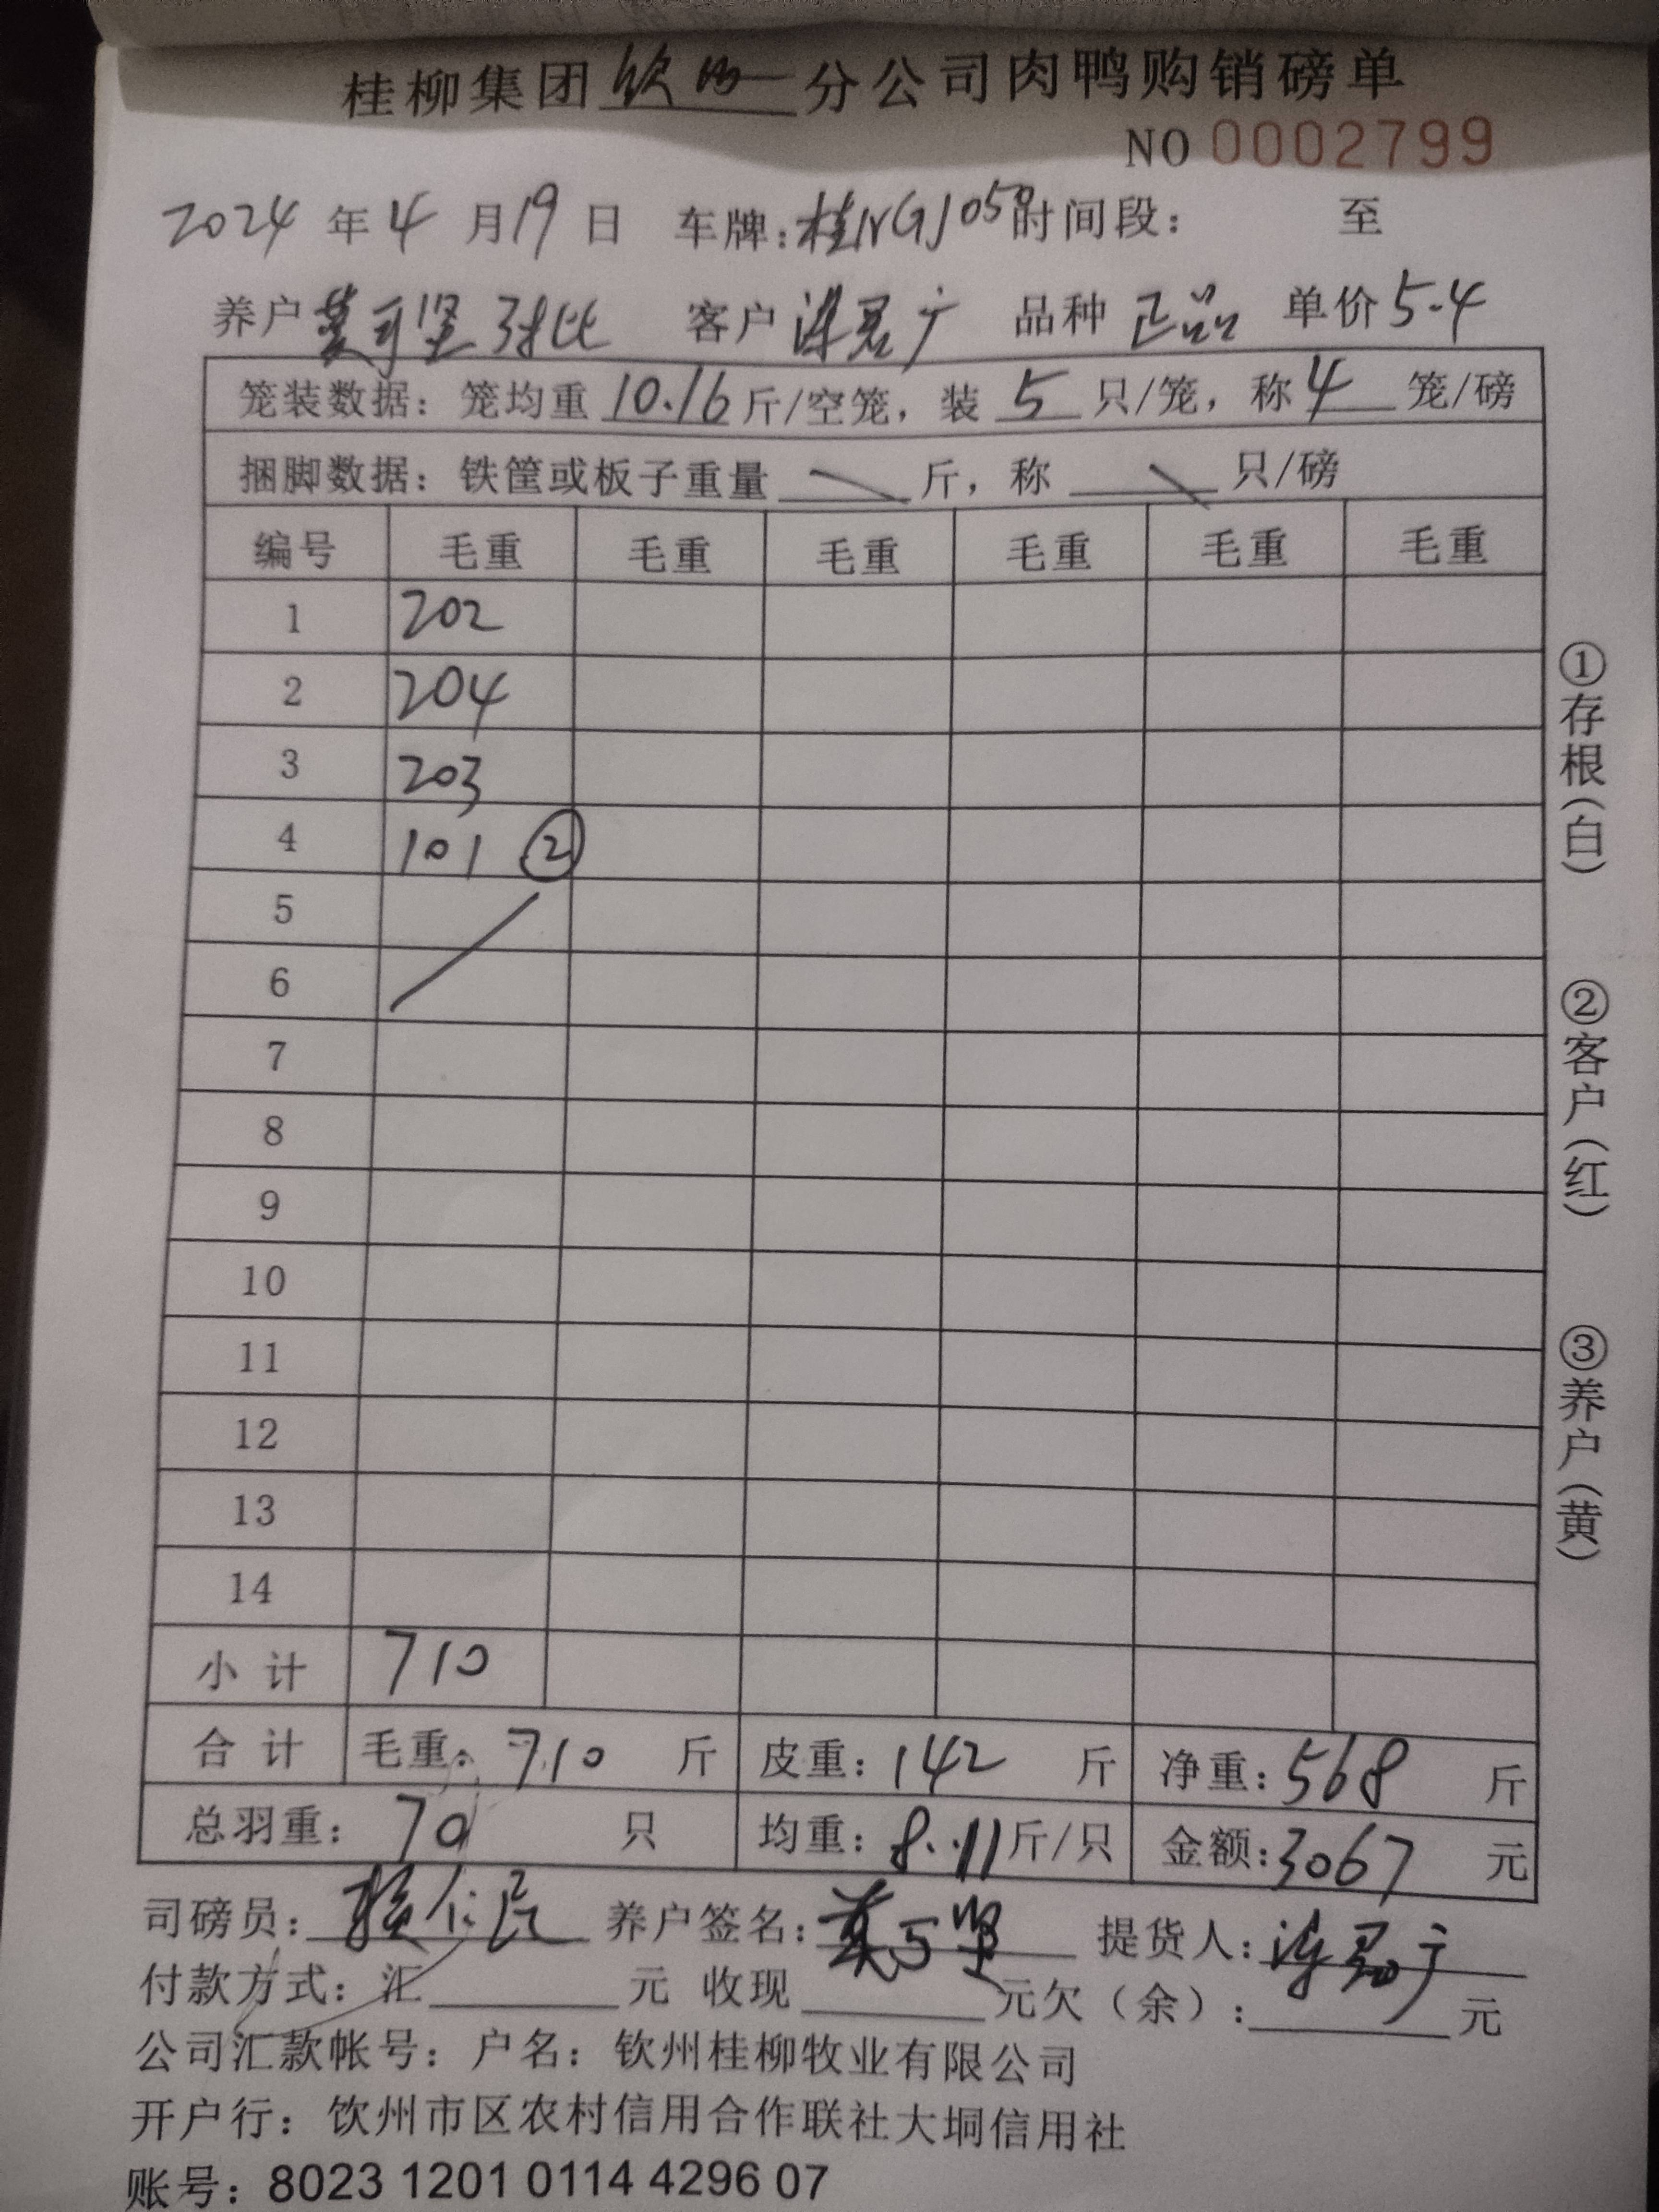 桂柳集团钦州分公司肉鸭购销磅单
NO 0002799
2024年4月19日 车牌:桂NGJ050 时间段: 至
养户 莫可坚 对比 客户 广 品种 正品 单价 5.4
笼装数据: 笼均重 10.16 斤/空笼, 装 5 只/笼, 称 4 笼/磅
捆脚数据: 铁筐或板子重量 斤, 称 只/磅
编号 毛重 毛重 毛重 毛重 毛重 毛重
1 202
2 204
3 203
4 101 ②
5
6
7
8
9
10
11
12
13
14
小计 710
合计 毛重: 710 斤 皮重: 142 斤 净重: 568 斤
总羽重: 70 只 均重: 8.11 斤/只 金额: 3067 元
司磅员: 养户签名: 莫可坚 提货人: 广
付款方式: 汇 元 收现 元欠(余): 元
公司汇款帐号: 户名: 钦州桂柳牧业有限公司
开户行: 钦州市区农村信用合作联社大垌信用社
账号: 8023 1201 0114 4296 07
①存根(白)
②客户(红)
③养户(黄)